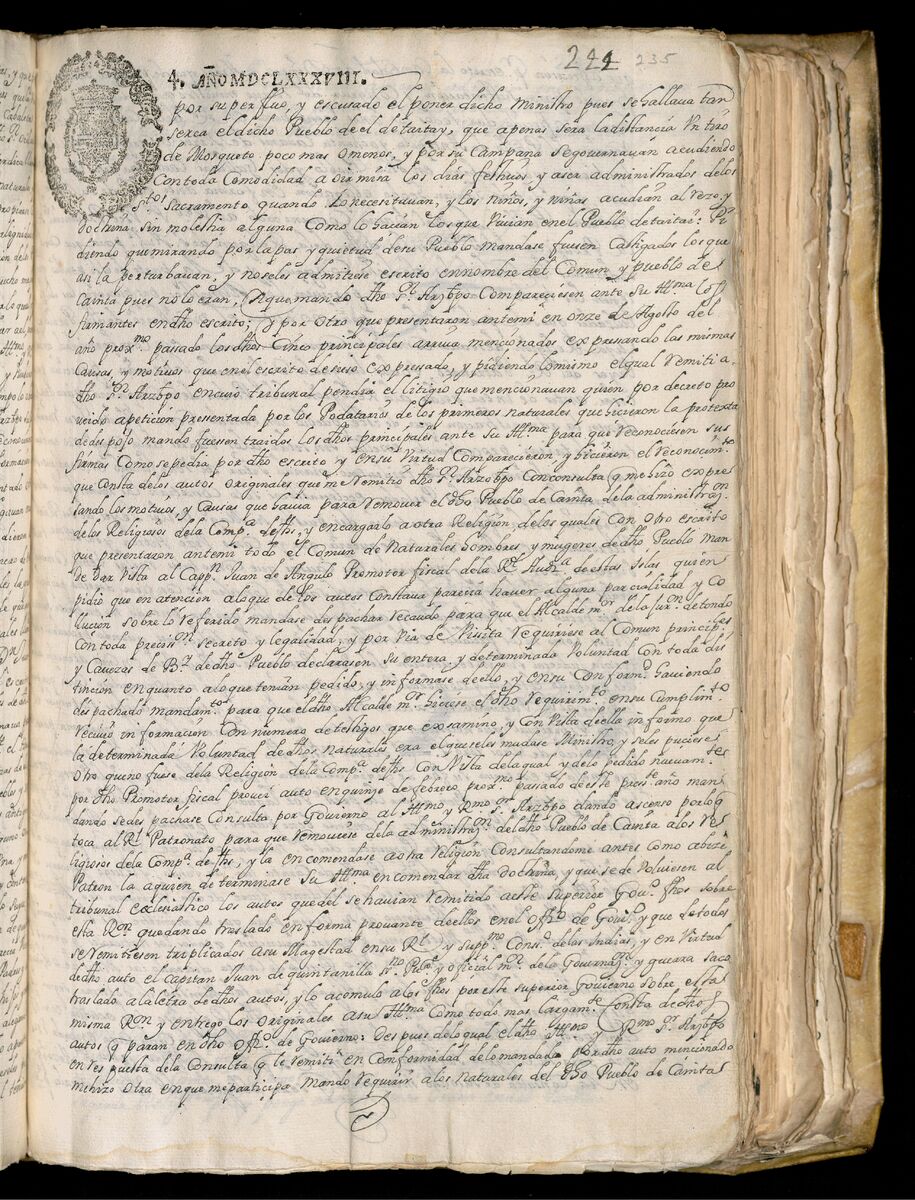 241 235
4. AÑO MDCLXXXVIII.
por superfluo, y escusado el poner dicho Ministro pues se hallaua tan
serca el dicho Pueblo de el de taitay, que apenas sera la distancia Un tiro
de Mosquete poco mas o menos, y por su Campana se gouernauan acudiendo
con toda Comodidad a oir missa los dias festiuos, y a ser administrados de los
S.tos Sacramento quando lo necesitauan, y los Niños, y niñas acudian al rezo, y
doctrina, sin molestia alguna Como lo hacian los que viuian en el Pueblo de taitai: Pi
diendo que mirando por la pas, y quietud de su Pueblo mandase fuesen Castigados los que
asi la perturbauan, y no se les admitiese escrito en nombre del Comun, y pueblo de
Cainta pues no lo eran, A que mando dho S.r Arzbpo Compareciesen ante Su Ill.ma los
firmantes en dho escrito; y por otro que presentaron ante mi en onze de Agosto del
año prox.mo passado los dhos Cinco principales arriua mencionados expresando las mismas
Causas, y motiuos que en el escrito de suso expressado, y pidiendo lo mismo el qual remiti a
dho S.r Arzbpo en cuio tribunal pendia el litigio que mencionauan quien por decreto pro
ueido a peticion pressentada por los Podatarios de los primeros naturales que hicieron la protexta
de despojo mando fuessen traidos los dhos principales ante Su Ill.ma para que reconociesen sus
firmas Como se pedia por dho escrito, y en su Virtud Comparecieron, y hicieron el reconosim.to
que Consta de los autos originales que me remitio dho S.r Arzbpo Con consulta q me hizo expre
sando los motiuos, y Causas que hauia para remouer el dho Pueblo de Cainta de la administraz.on
de los Religiosos de la Comp.a de Jhs, y encargarlo a otra Religion, de los quales con otro escrito
que presentaron ante mi todo el Comun de Naturales hombres, y mugeres de dho Pueblo man
de dar Vista al Capp.n Juan de Angulo Promotor fiscal de la R.l Aud.a de estas Islas quien
pidio que en atencion a lo que de los autos Constaua parecia hauer alguna parcialidad, y Co
lucion sobre lo referido mandase despachar recaudo para que el Alcalde m.or de la Jur.on de tondo
Con toda preciss.on secreto, y legalidad, y por Via de Visita requiriese al Comun princip.es
y Cauezas de B.y de dho Pueblo declarasen su entera, y determinada Voluntad Con toda dis
tincion en quanto a lo que tenian pedido, y informase de ello, y en su Conform.d hauiendo
despachado mandam.to para que el dho Alcalde m.or hiciese el dho requirim.to en su Cumplim.to
reciuio informacion Con numero de testigos que examino, y Con Vista de ella informo que
la determinada Voluntad de dhos naturales era el que se les mudase Ministro, y se les pusiese
otro que no fuese de la Religion de la Comp.a de Jhs Con Vista de la qual, y de lo pedido nueuam.te
por dho Promotor fiscal proueí auto en quinze de febrero prox.mo passado de este press.te año man
dando se despachase Consulta por Gouierno al Ill.mo y R.mo S.or Arzbpo dando ascenso por lo q
toca al R.l Patronato para que remouiese de la administraz.on del dho Pueblo de Cainta a los re
ligiosos de la Comp.a de Jhs, y la encomendase a otra religion Consultandome antes como a bice
Patron la a quien determinase Su Ill.ma encomendar dha doctrina, y que se deVoluiesen al
tribunal ecclesiastico los autos que del se hauian remitido a este Superior Gou.no fhos sobre
esta R.on quedando traslado en forma prouante de ellos en el off.o de Gou.no, y que de todo
se remitiesen triplicados a su Magestad en su R.l y supp.mo Cons.o de las Indias, y en Virtud
de dho auto el capitan Juan de quintanilla ss.no Pub.co y oficial m.or de la Gouernaz.on y guerra saco
traslado a la letra de dhos autos, y lo acumulo a los fhos por este superior Gouierno sobre esta
misma R.on y entrego los originales a su Ill.ma Como todo mas largam.te Consta de dhos
autos q paran en dho off.o de Gouierno: Despues de lo qual el dho Ill.mo y R.mo S.or Arzbpo
en respuesta de la Consulta q le remiti en Conformidad de lo mandado por dho auto mencionado
me hizo otra en que me participa Mando requirir a los naturales del dho Pueblo de Cainta